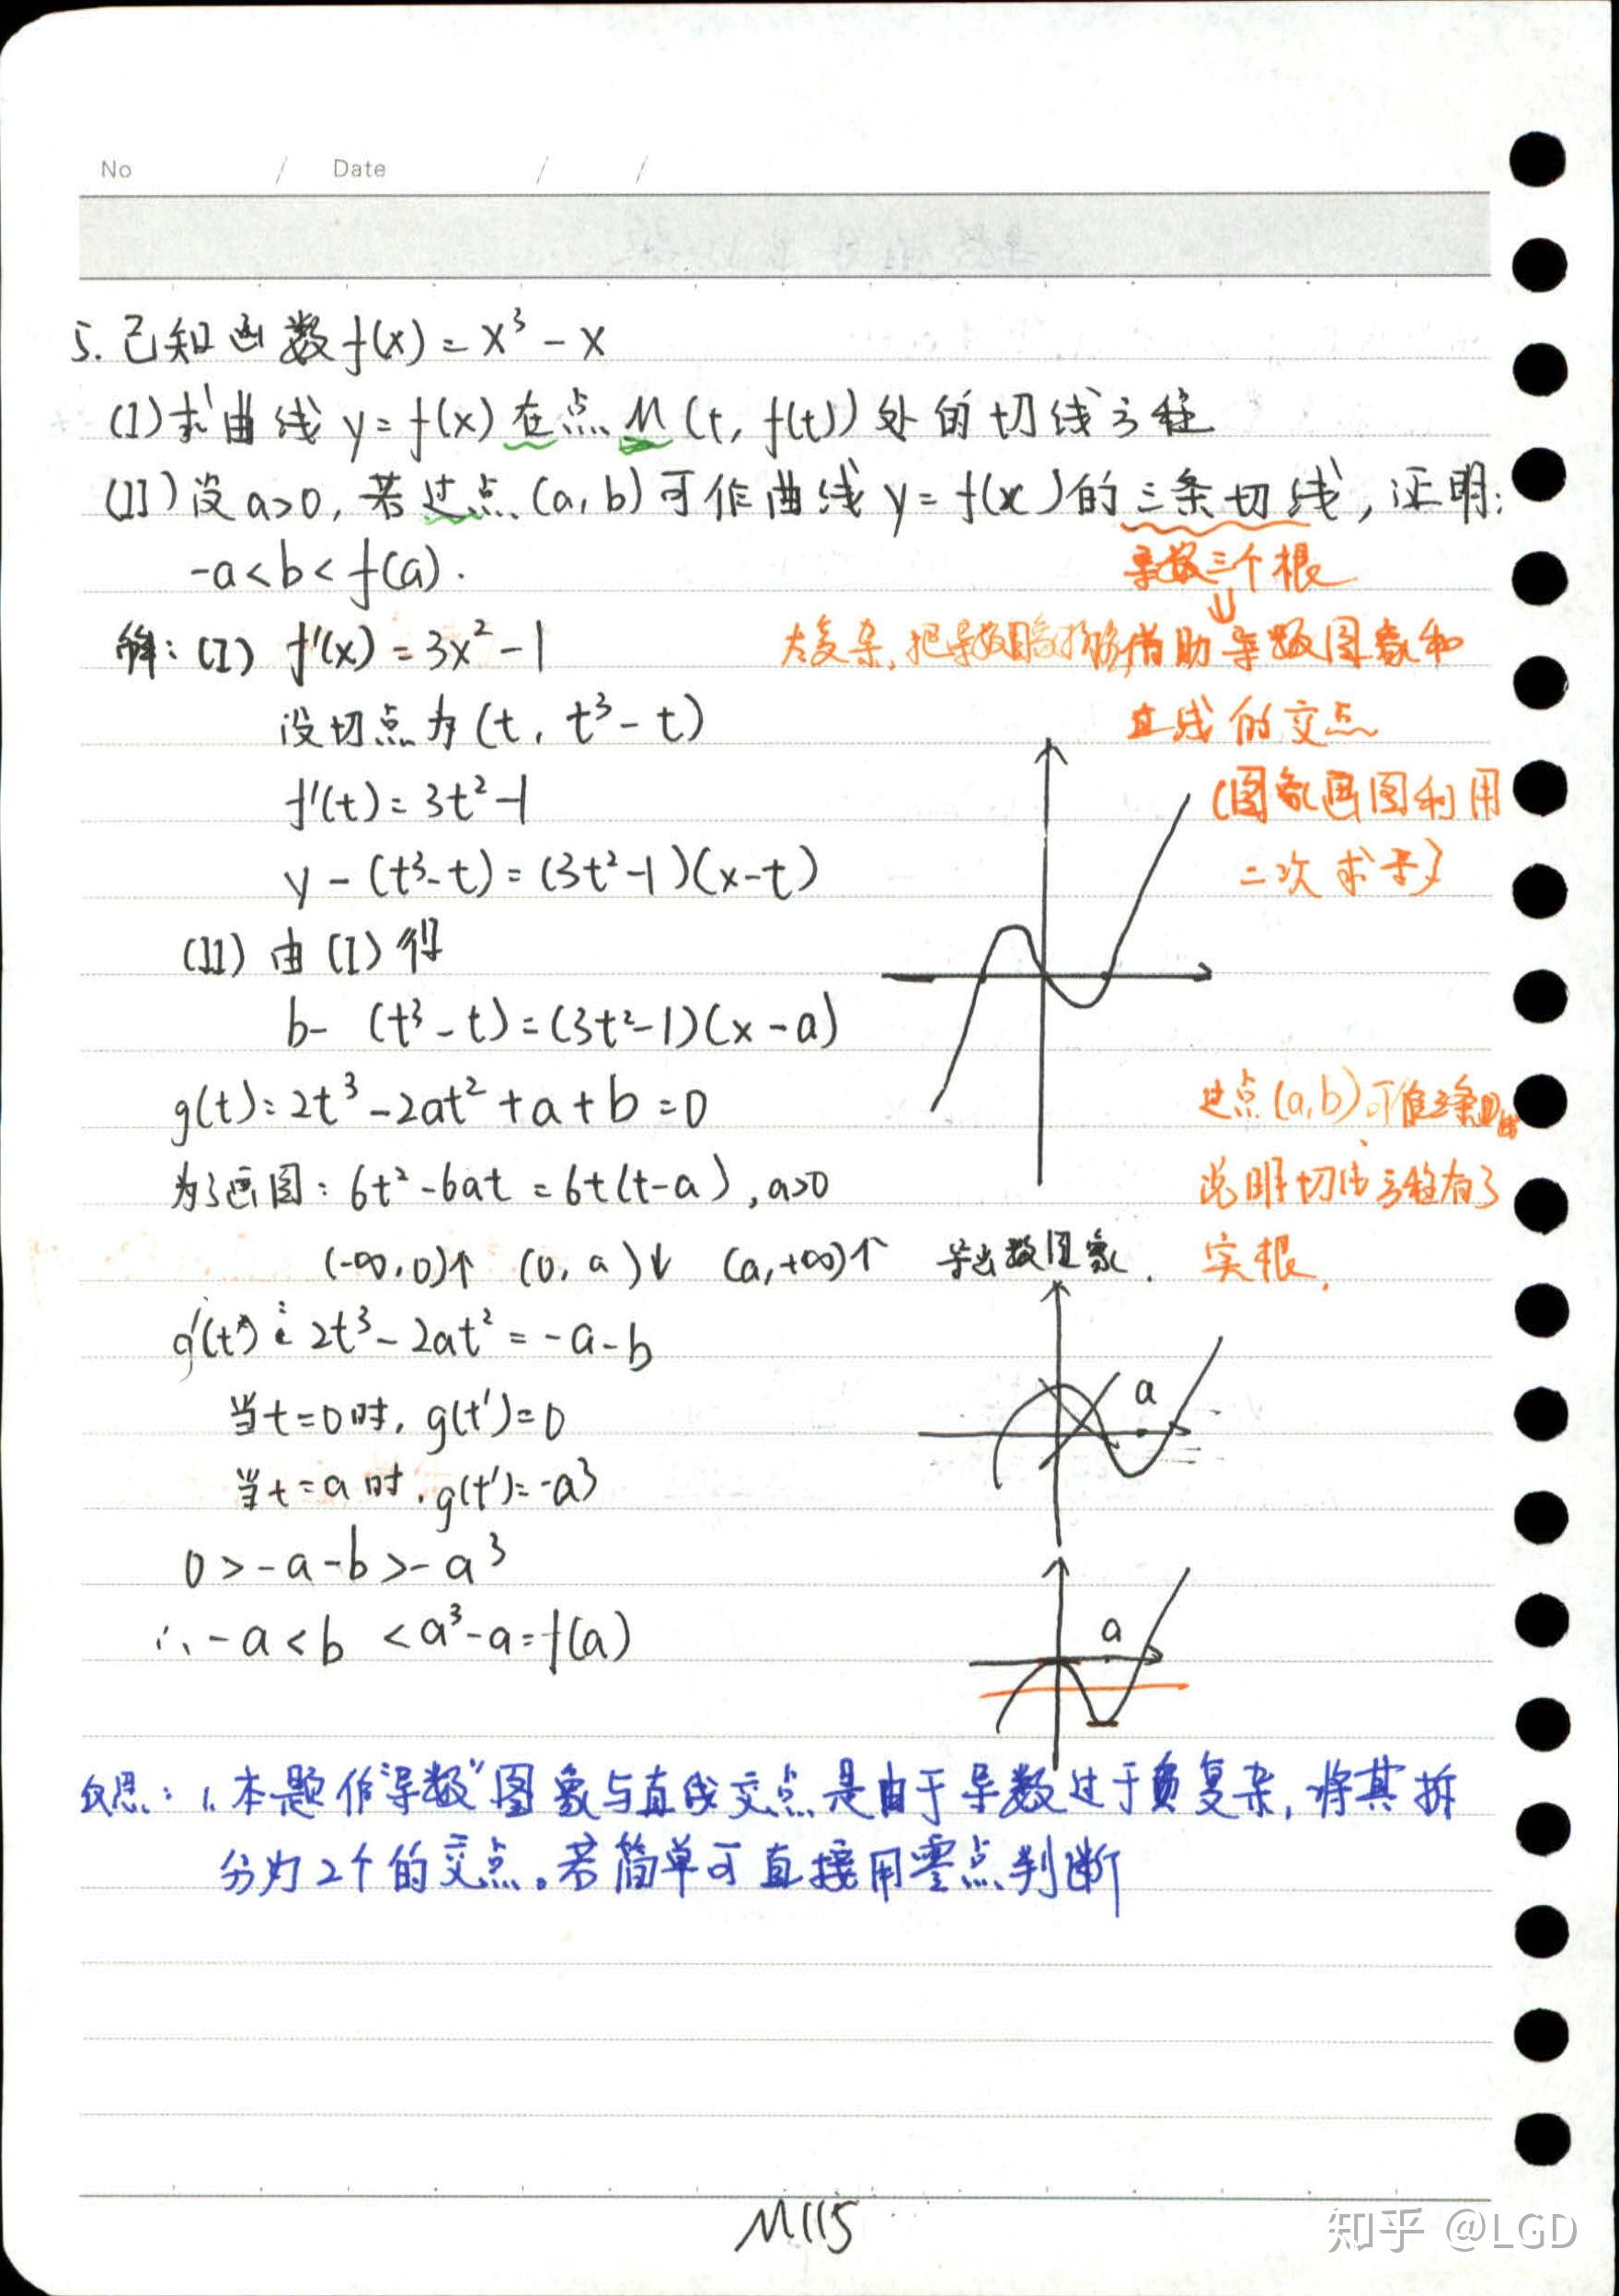 No / Date / /
5. 已知函数f(x)=x³-x
(I)求曲线y=f(x)在点M(t, f(t))处的切线方程
(II)设a>0, 若过点(a,b)可作曲线y=f(x)的三条切线, 证明:
-a<b<f(a).
导数三个根
⇓
解: (I) f'(x)=3x²-1
太复杂, 把导数图象拆 借助导数图象和
设切点为(t, t³-t)
直线的交点
f'(t)=3t²-1
(图象画图利用
y-(t³-t)=(3t²-1)(x-t)
二次求导)
(II) 由(I)得
b-(t³-t)=(3t²-1)(x-a)
g(t):2t³-2at²+a+b=0
过点(a,b)可作三条
为了画图: 6t²-6at=6t(t-a), a>0
说明切线方程有3
(-∞,0)↑ (0,a)↓ (a,+∞)↑
导数图象.
实根.
g'(t): 2t³-2at²=-a-b
a
当t=0时, g(t')=0
当t=a时, g(t')=-a³
0>-a-b>-a³
∴-a<b<a³-a=f(a)
a
反思: 1.本题作"导数"图象与直线交点是由于导数过于复杂, 将其拆
分为2个的交点。若简单可直接用零点判断
M115
知乎 @LGD